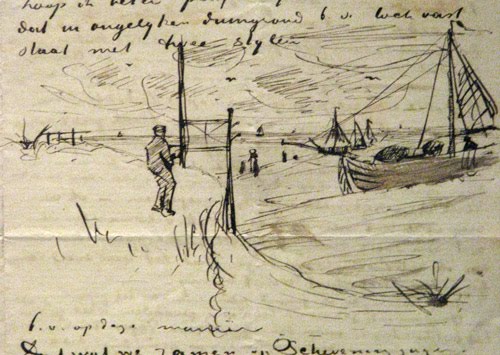 hoop ik beter
dat in ongelyken duingrond b. v. toch vast
staat met twee stylen
b. v. op deze manier
Dat wat we zamen op Scheveningen zagen